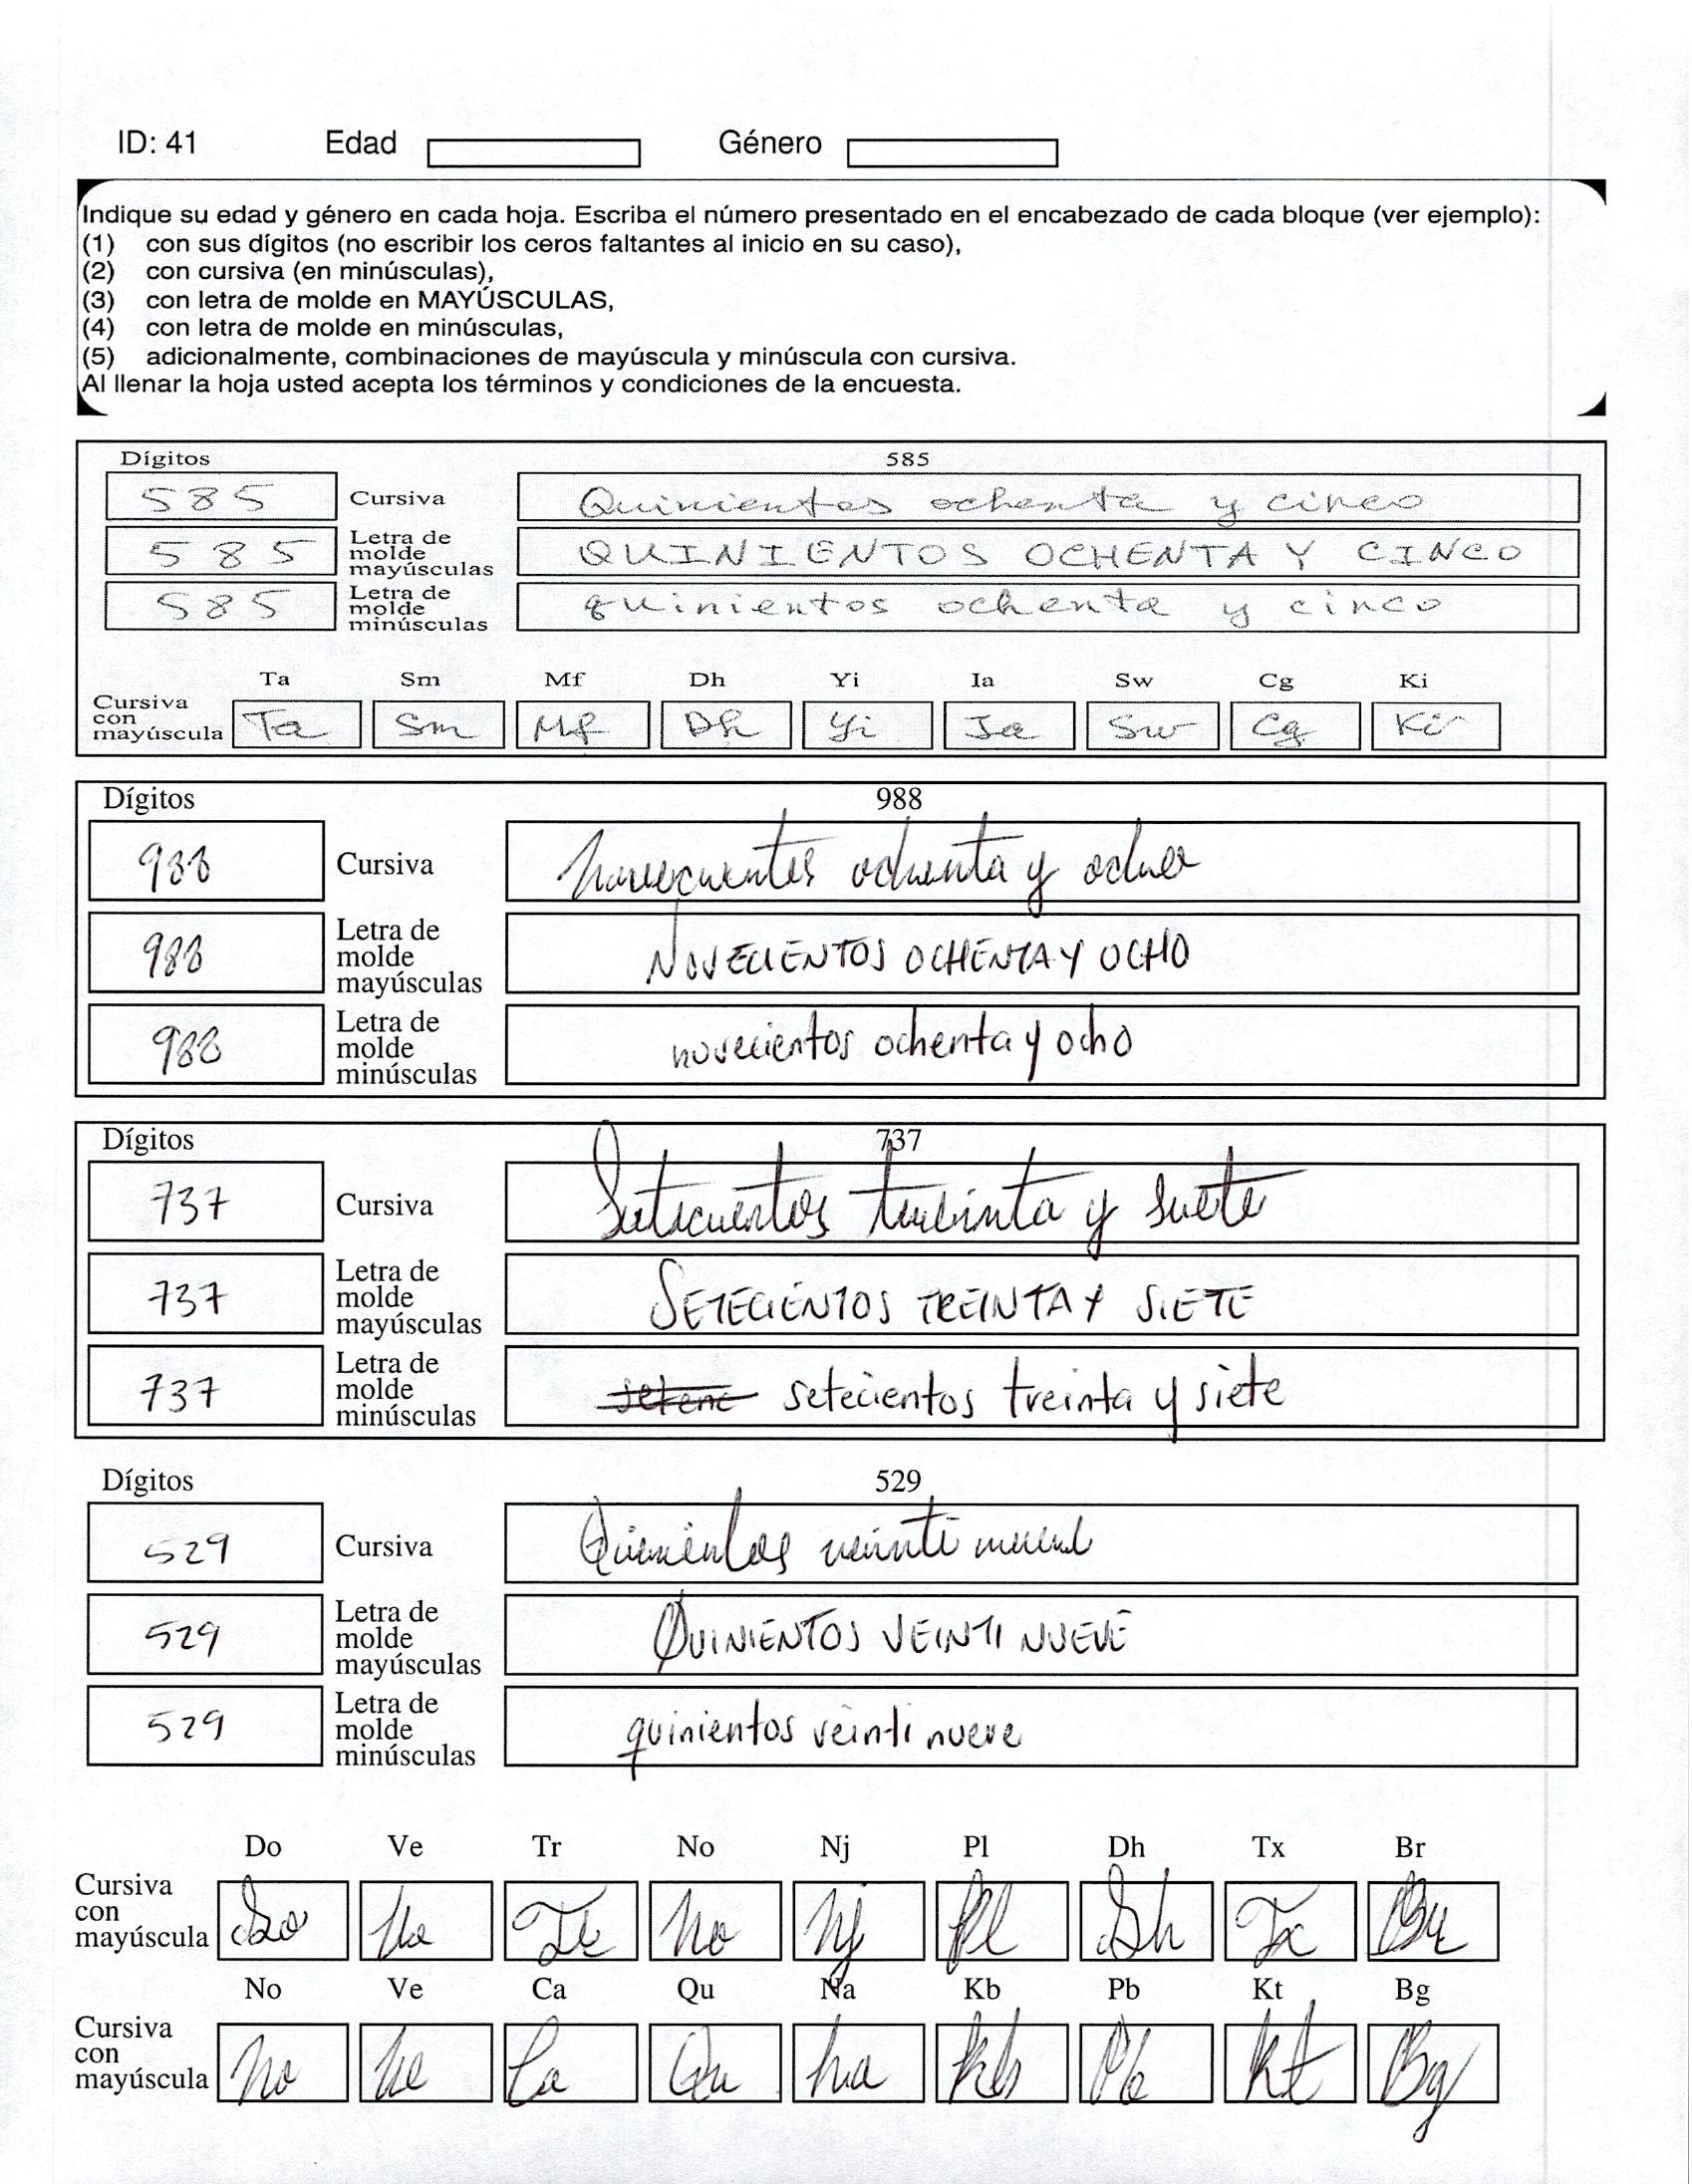 ID: 41 Edad Género
Indique su edad y género en cada hoja. Escriba el número presentado en el encabezado de cada bloque (ver ejemplo):
(1) con sus dígitos (no escribir los ceros faltantes al inicio en su caso),
(2) con cursiva (en minúsculas),
(3) con letra de molde en MAYÚSCULAS,
(4) con letra de molde en minúsculas,
(5) adicionalmente, combinaciones de mayúscula y minúscula con cursiva.
Al llenar la hoja usted acepta los términos y condiciones de la encuesta.
Dígitos 585
585 Cursiva Quinientos ochenta y cinco
585 Letra de molde mayúsculas QUINIENTOS OCHENTA Y CINCO
585 Letra de molde minúsculas quinientos ochenta y cinco
Ta Sm Mf Dh Yi Ia Sw Cg Ki
Cursiva con mayúscula Ta Sm Mf Dh Yi Ia Sw Cg Ki
Dígitos 988
988 Cursiva ochenta y
988 Letra de molde mayúsculas NOVECIENTOS OCHENTA Y OCHO
988 Letra de molde minúsculas novecientos ochenta y ocho
Dígitos 737
737 Cursiva y
737 Letra de molde mayúsculas SETECIENTOS TREINTA Y SIETE
737 Letra de molde minúsculas setenc setecientos treinta y siete
Dígitos 529
529 Cursiva veinti
529 Letra de molde mayúsculas QUINIENTOS VEINTI NUEVE
529 Letra de molde minúsculas quinientos veinti nueve
Do Ve Tr No Nj Pl Dh Tx Br
Cursiva con mayúscula Do Ve Tr No Nj Pl Dh Tx Br
No Ve Ca Qu Na Kb Pb Kt Bg
Cursiva con mayúscula No Ve Ca Qu Na Kb Pb Kt Bg